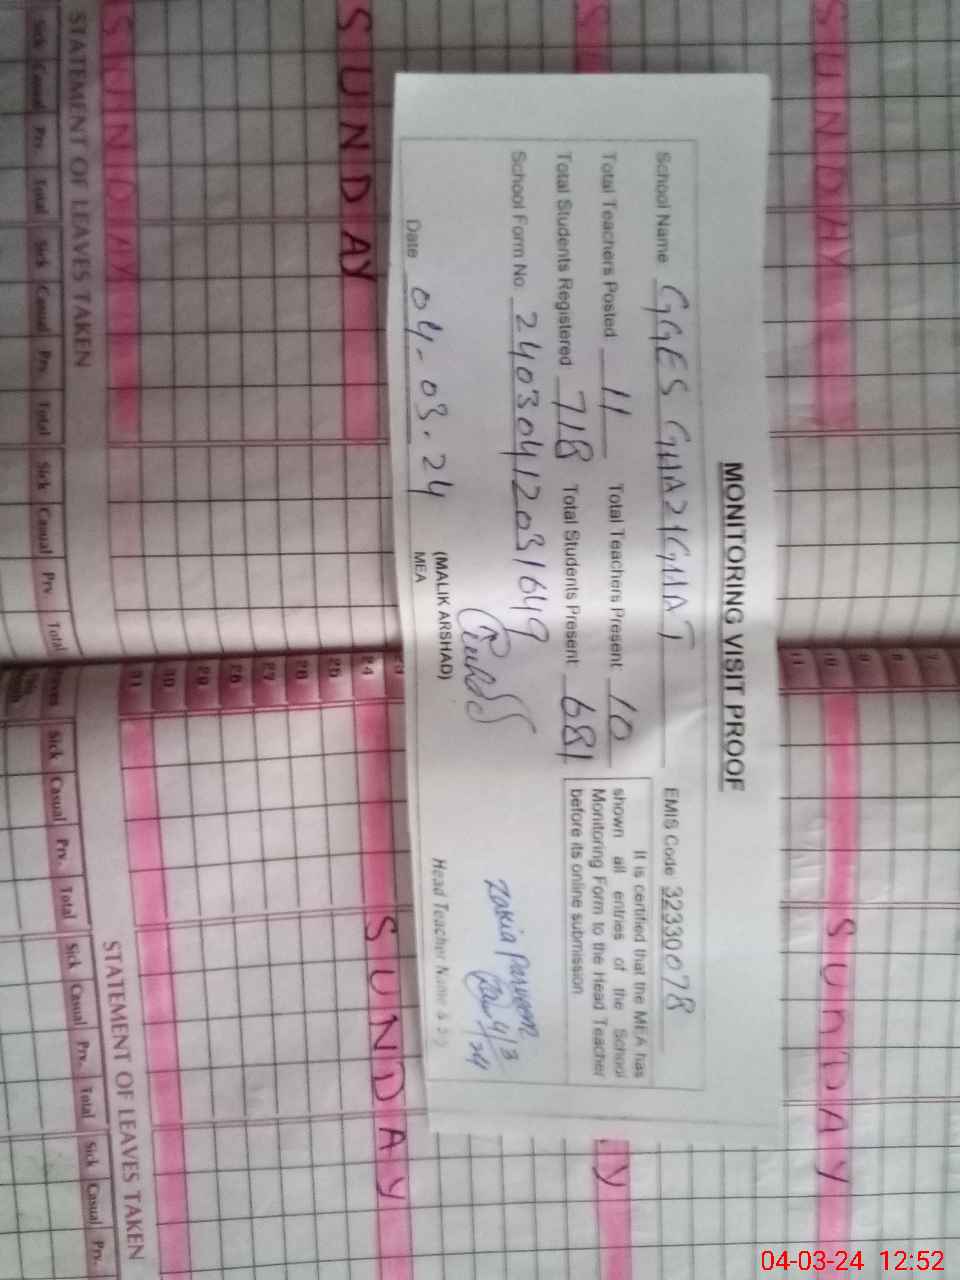 MONITORING VISIT PROOF
School Name GGES GHAZIGHAT EMIS Code 32330078
Total Teachers Posted 11 Total Teachers Present 10
Total Students Registered 718 Total Students Present 681
School Form No. 24030412031649
It is certified that the MEA has
shown all entries of the School
Monitoring Form to the Head Teacher
before its online submission
Date 04-03-24
(MALIK ARSHAD)
MEA
Zakia Parveen
4/3/24
Head Teacher Name &
SUNDAY
SUNDAY
SUNDAY
SUNDAY
SUNDAY
STATEMENT OF LEAVES TAKEN
Sick Casual Prv. Total Sick Casual Prv. Total Sick Casual Prv. Total
STATEMENT OF LEAVES TAKEN
Sick Casual Prv. Total Sick Casual Prv. Total Sick Casual Prv.
7
8
9
10
11
24
25
28
27
26
29
30
31
04-03-24 12:52